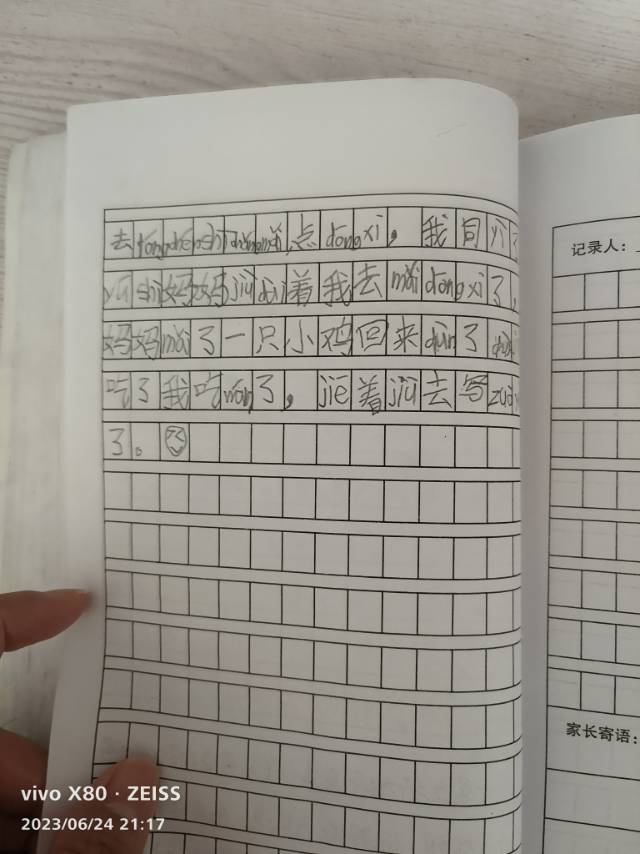 去 cháng mǎi 点 dōng xi，我同 yì
妈妈 jiù dài 着我去 mǎi dōng xi 了，
妈妈 mǎi 了一只小鸡回来 dùn 了
吃了我吃 wán 了，jiē 着 jiù 去写 zuò
了。
记录人：
家长寄语：
vivo X80 · ZEISS
2023/06/24 21:17